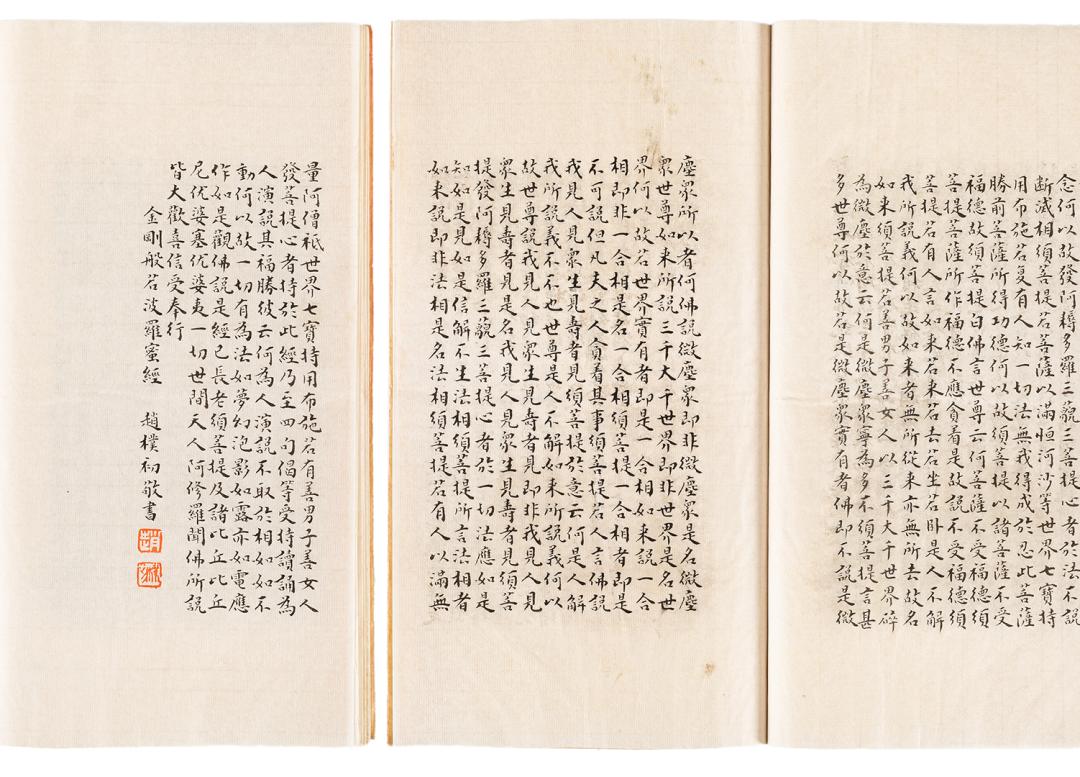 念何以故發阿耨多羅三藐三菩提心者於法不說
斷滅相須菩提若菩薩以滿恒河沙等世界七寶持
用布施若復有人知一切法無我得成於忍此菩薩
勝前菩薩所得功德何以故須菩提以諸菩薩不受
福德故須菩提白佛言世尊云何菩薩不受福德須
菩提菩薩所作福德不應貪着是故說不受福德須
菩提若有人言如來若來若去若坐若卧是人不解
我所說義何以故如來者無所從來亦無所去故名
如來須菩提若善男子善女人以三千大千世界碎
為微塵於意云何是微塵眾寧為多不須菩提言甚
多世尊何以故若是微塵眾實有者佛即不說是微
塵眾所以者何佛說微塵眾即非微塵眾是名微塵
眾世尊如來所說三千大千世界即非世界是名世
界何以故若世界實有者即是一合相如來說一合
相即非一合相是名一合相須菩提一合相者即是
不可說但凡夫之人貪着其事須菩提若人言佛說
我見人見眾生見壽者見須菩提於意云何是人解
我所說義不不也世尊是人不解如來所說義何以
故世尊說我見人見眾生見壽者見即非我見人見
眾生見壽者見是名我見人見眾生見壽者見須菩
提發阿耨多羅三藐三菩提心者於一切法應如是
知如是見如是信解不生法相須菩提所言法相者
如來說即非法相是名法相須菩提若有人以滿無
量阿僧祇世界七寶持用布施若有善男子善女人
發菩提心者持於此經乃至四句偈等受持讀誦為
人演說其福勝彼云何為人演說不取於相如如不
動何以故一切有為法如夢幻泡影如露亦如電應
作如是觀佛說是經已長老須菩提及諸比丘比丘
尼优婆塞优婆夷一切世間天人阿修羅聞佛所說
皆大歡喜信受奉行
金剛般若波羅蜜經 趙樸初敬書
趙